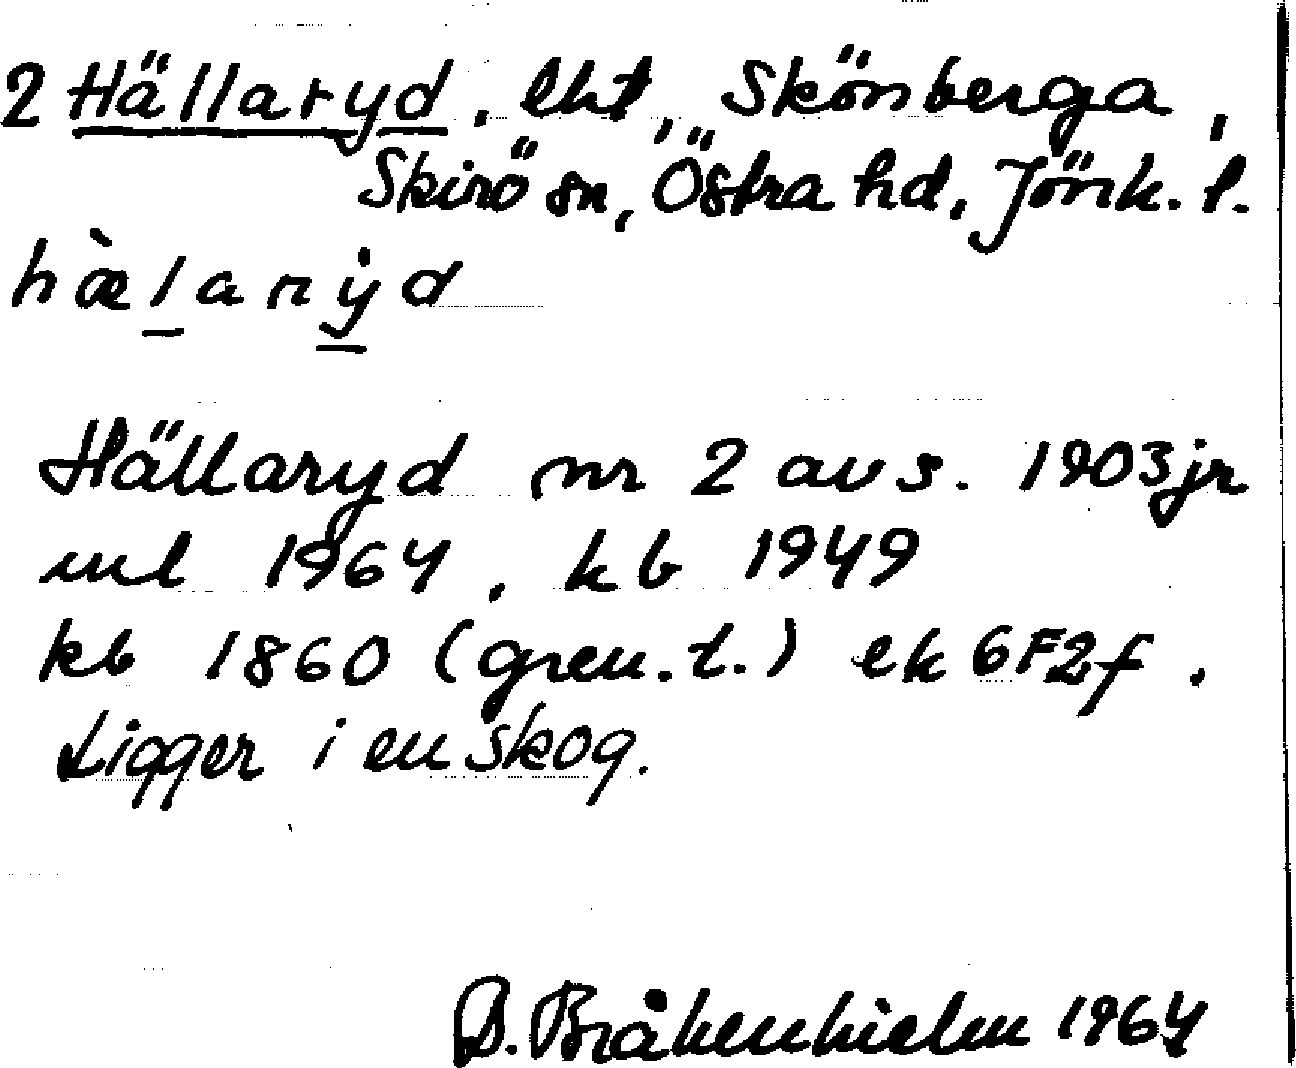 2 Hällaryd. lht, Skönberga,
Skirö sn, Östra hd, Jönk. l.
hàlarẏd
Hällaryd nr 2 avs. 1903 jr
ml 1964, kb 1949
kb 1860 (gren.t.) ek 6F2f.
Ligger i en skog.
B. Bråkenhielm 1964